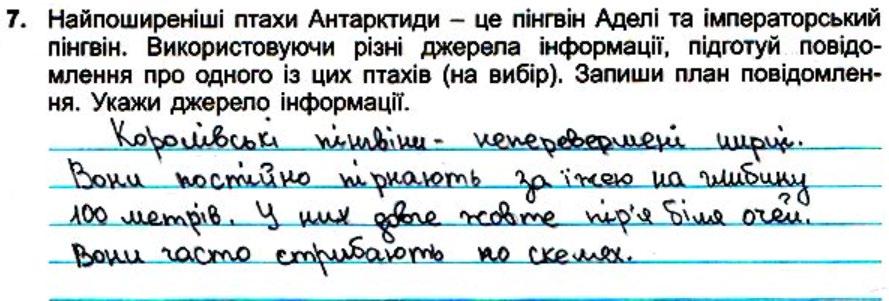 7. Найпоширеніші птахи Антарктиди – це пінгвін Аделі та імператорський
пінгвін. Використовуючи різні джерела інформації, підготуй повідо-
млення про одного із цих птахів (на вибір). Запиши план повідомлен-
ня. Укажи джерело інформації.
Королівські пінгвіни - неперевершені нирці.
Вони постійно пірнають за їжею на глибину
100 метрів. У них довге жовте пір'я біля очей.
Вони часто стрибають по скелях.